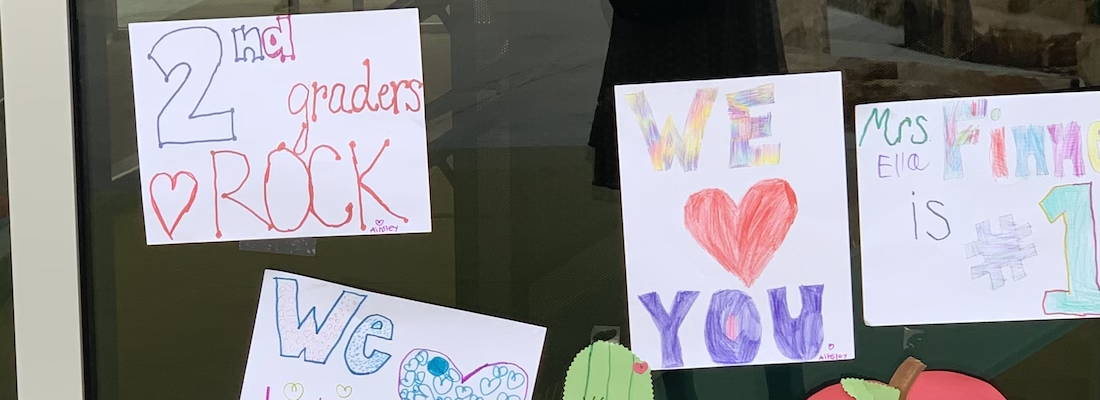 2nd
graders
ROCK
Ainsley
WE
YOU
Ainsley
Mrs. Finne
Ella
is
#1
We